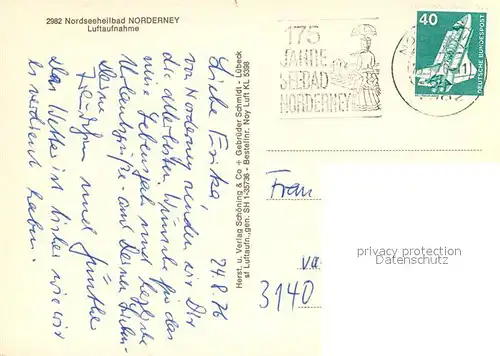 2982 Nordseeheilbad NORDERNEY
Luftaufnahme
175
JAHRE
SEEBAD
NORDERNEY
40
DEUTSCHE BUNDESPOST
Herst. u. Verlag Schöning & Co + Gebrüder Schmidt, Lübeck
sf Luftaufn.,gen. SH 1-35736 - Bestellnr. Noy Luft KL 5398
24.8.76
Liebe Erika,
von Norderney senden wir Dir
die allerbesten Wünsche für das
neue Lebensjahr und herzliche
Urlaubsgrüße - auch Deinen Lieben -
Deine
und Günther
Das Wetter ist bisher wie wir
es verdient haben.
Frau
va
3140
privacy protection
Datenschutz